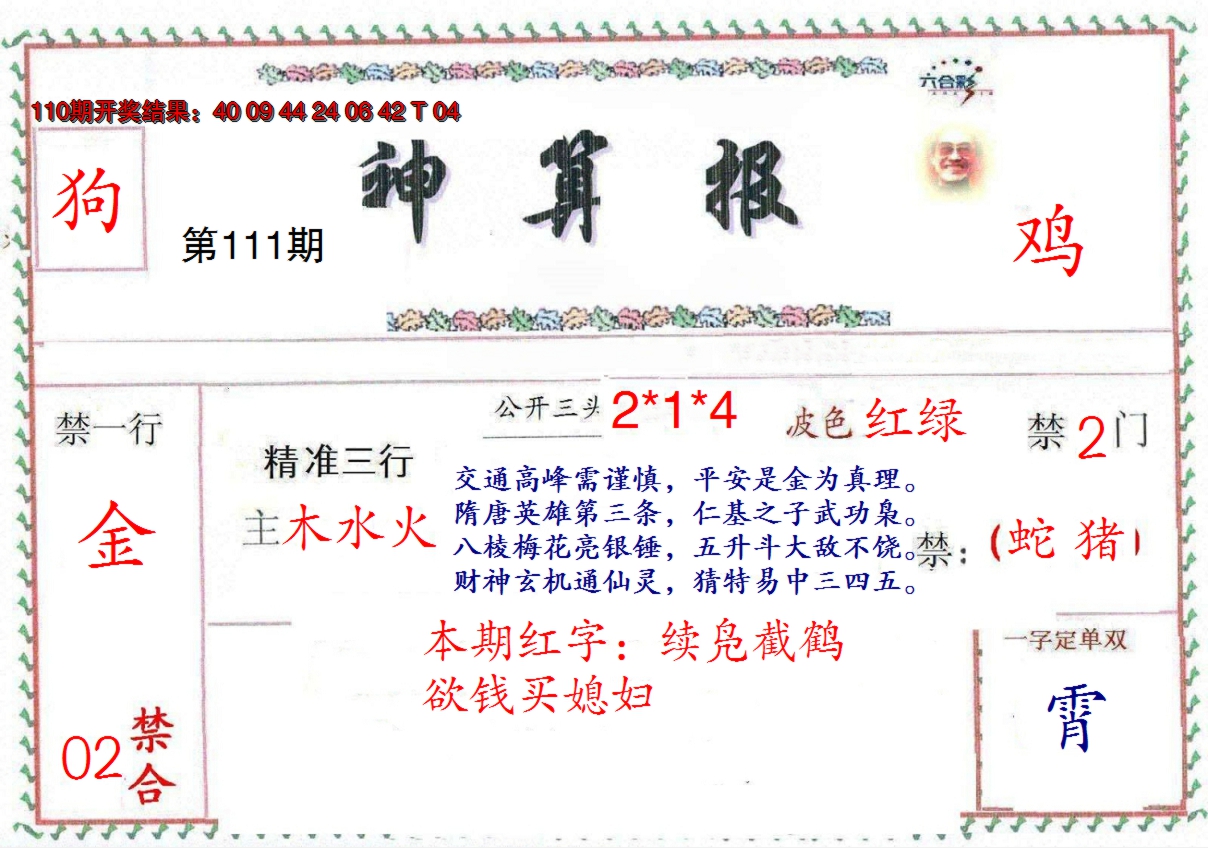 六合彩
110期开奖结果：40 09 44 24 06 42 T 04
神算报
狗
第111期
鸡
禁一行
金
02
禁合
精准三行
主木水火
公开三头 2*1*4
波色 红绿
禁2门
交通高峰需谨慎，平安是金为真理。
隋唐英雄第三条，仁基之子武功枭。
八棱梅花亮银锤，五升斗大敌不饶。
财神玄机通仙灵，猜特易中三四五。
禁：（蛇 猪）
本期红字：续凫截鹤
欲钱买媳妇
一字定单双
霄